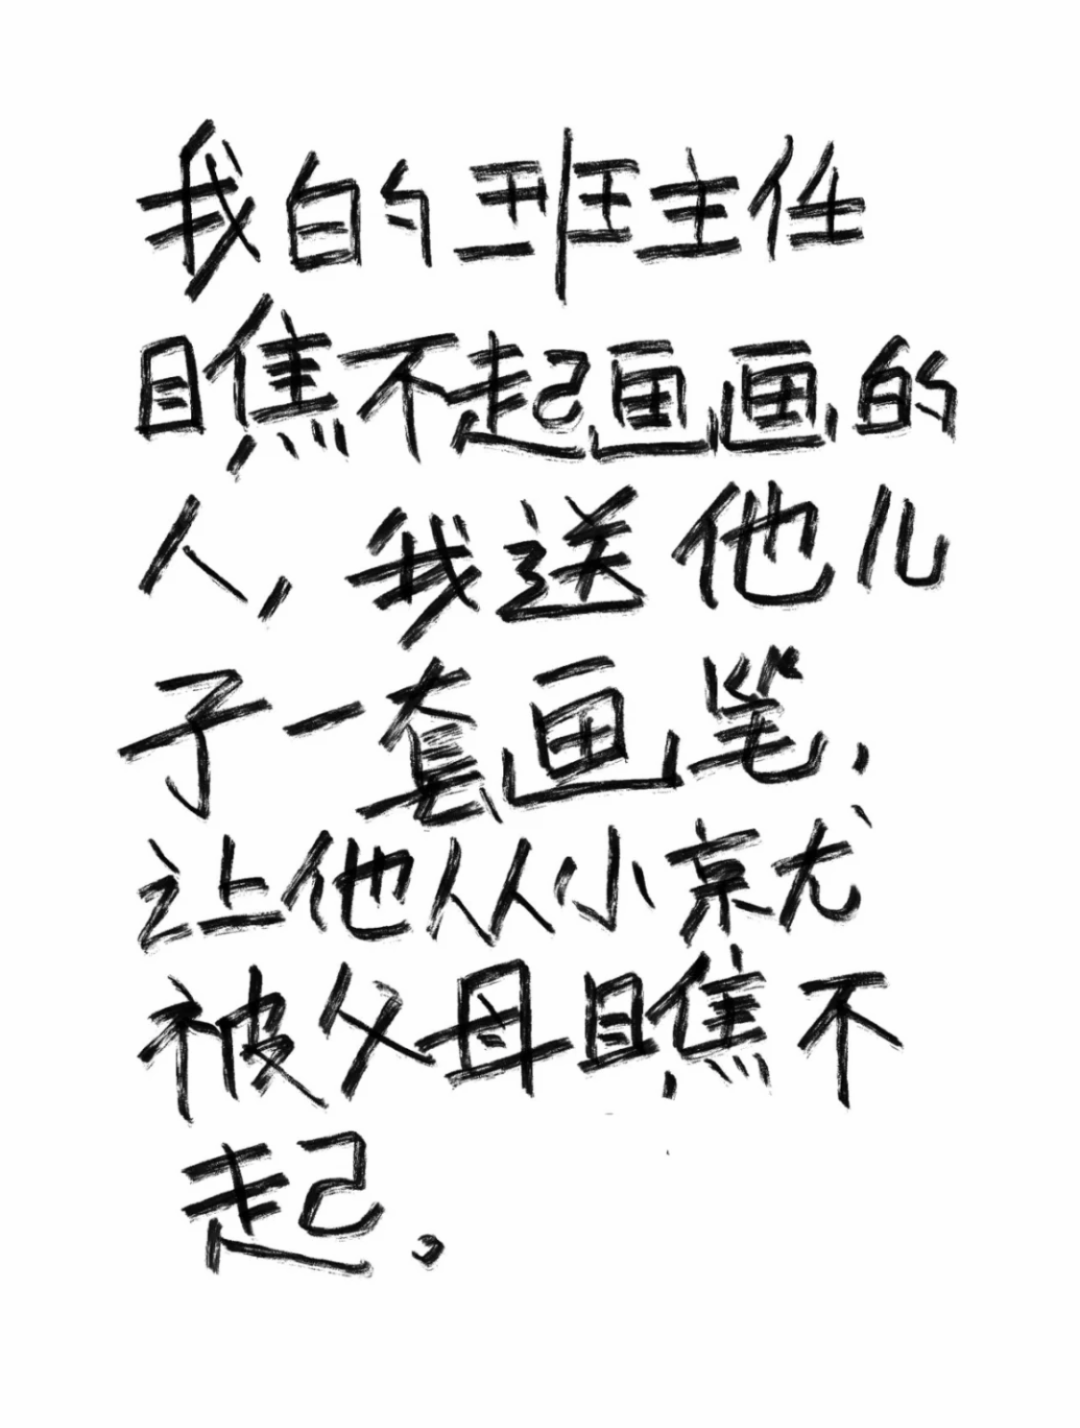 我的班主任
瞧不起画画的
人，我送他儿
子一套画笔，
让他从小就
被父母瞧不
起。